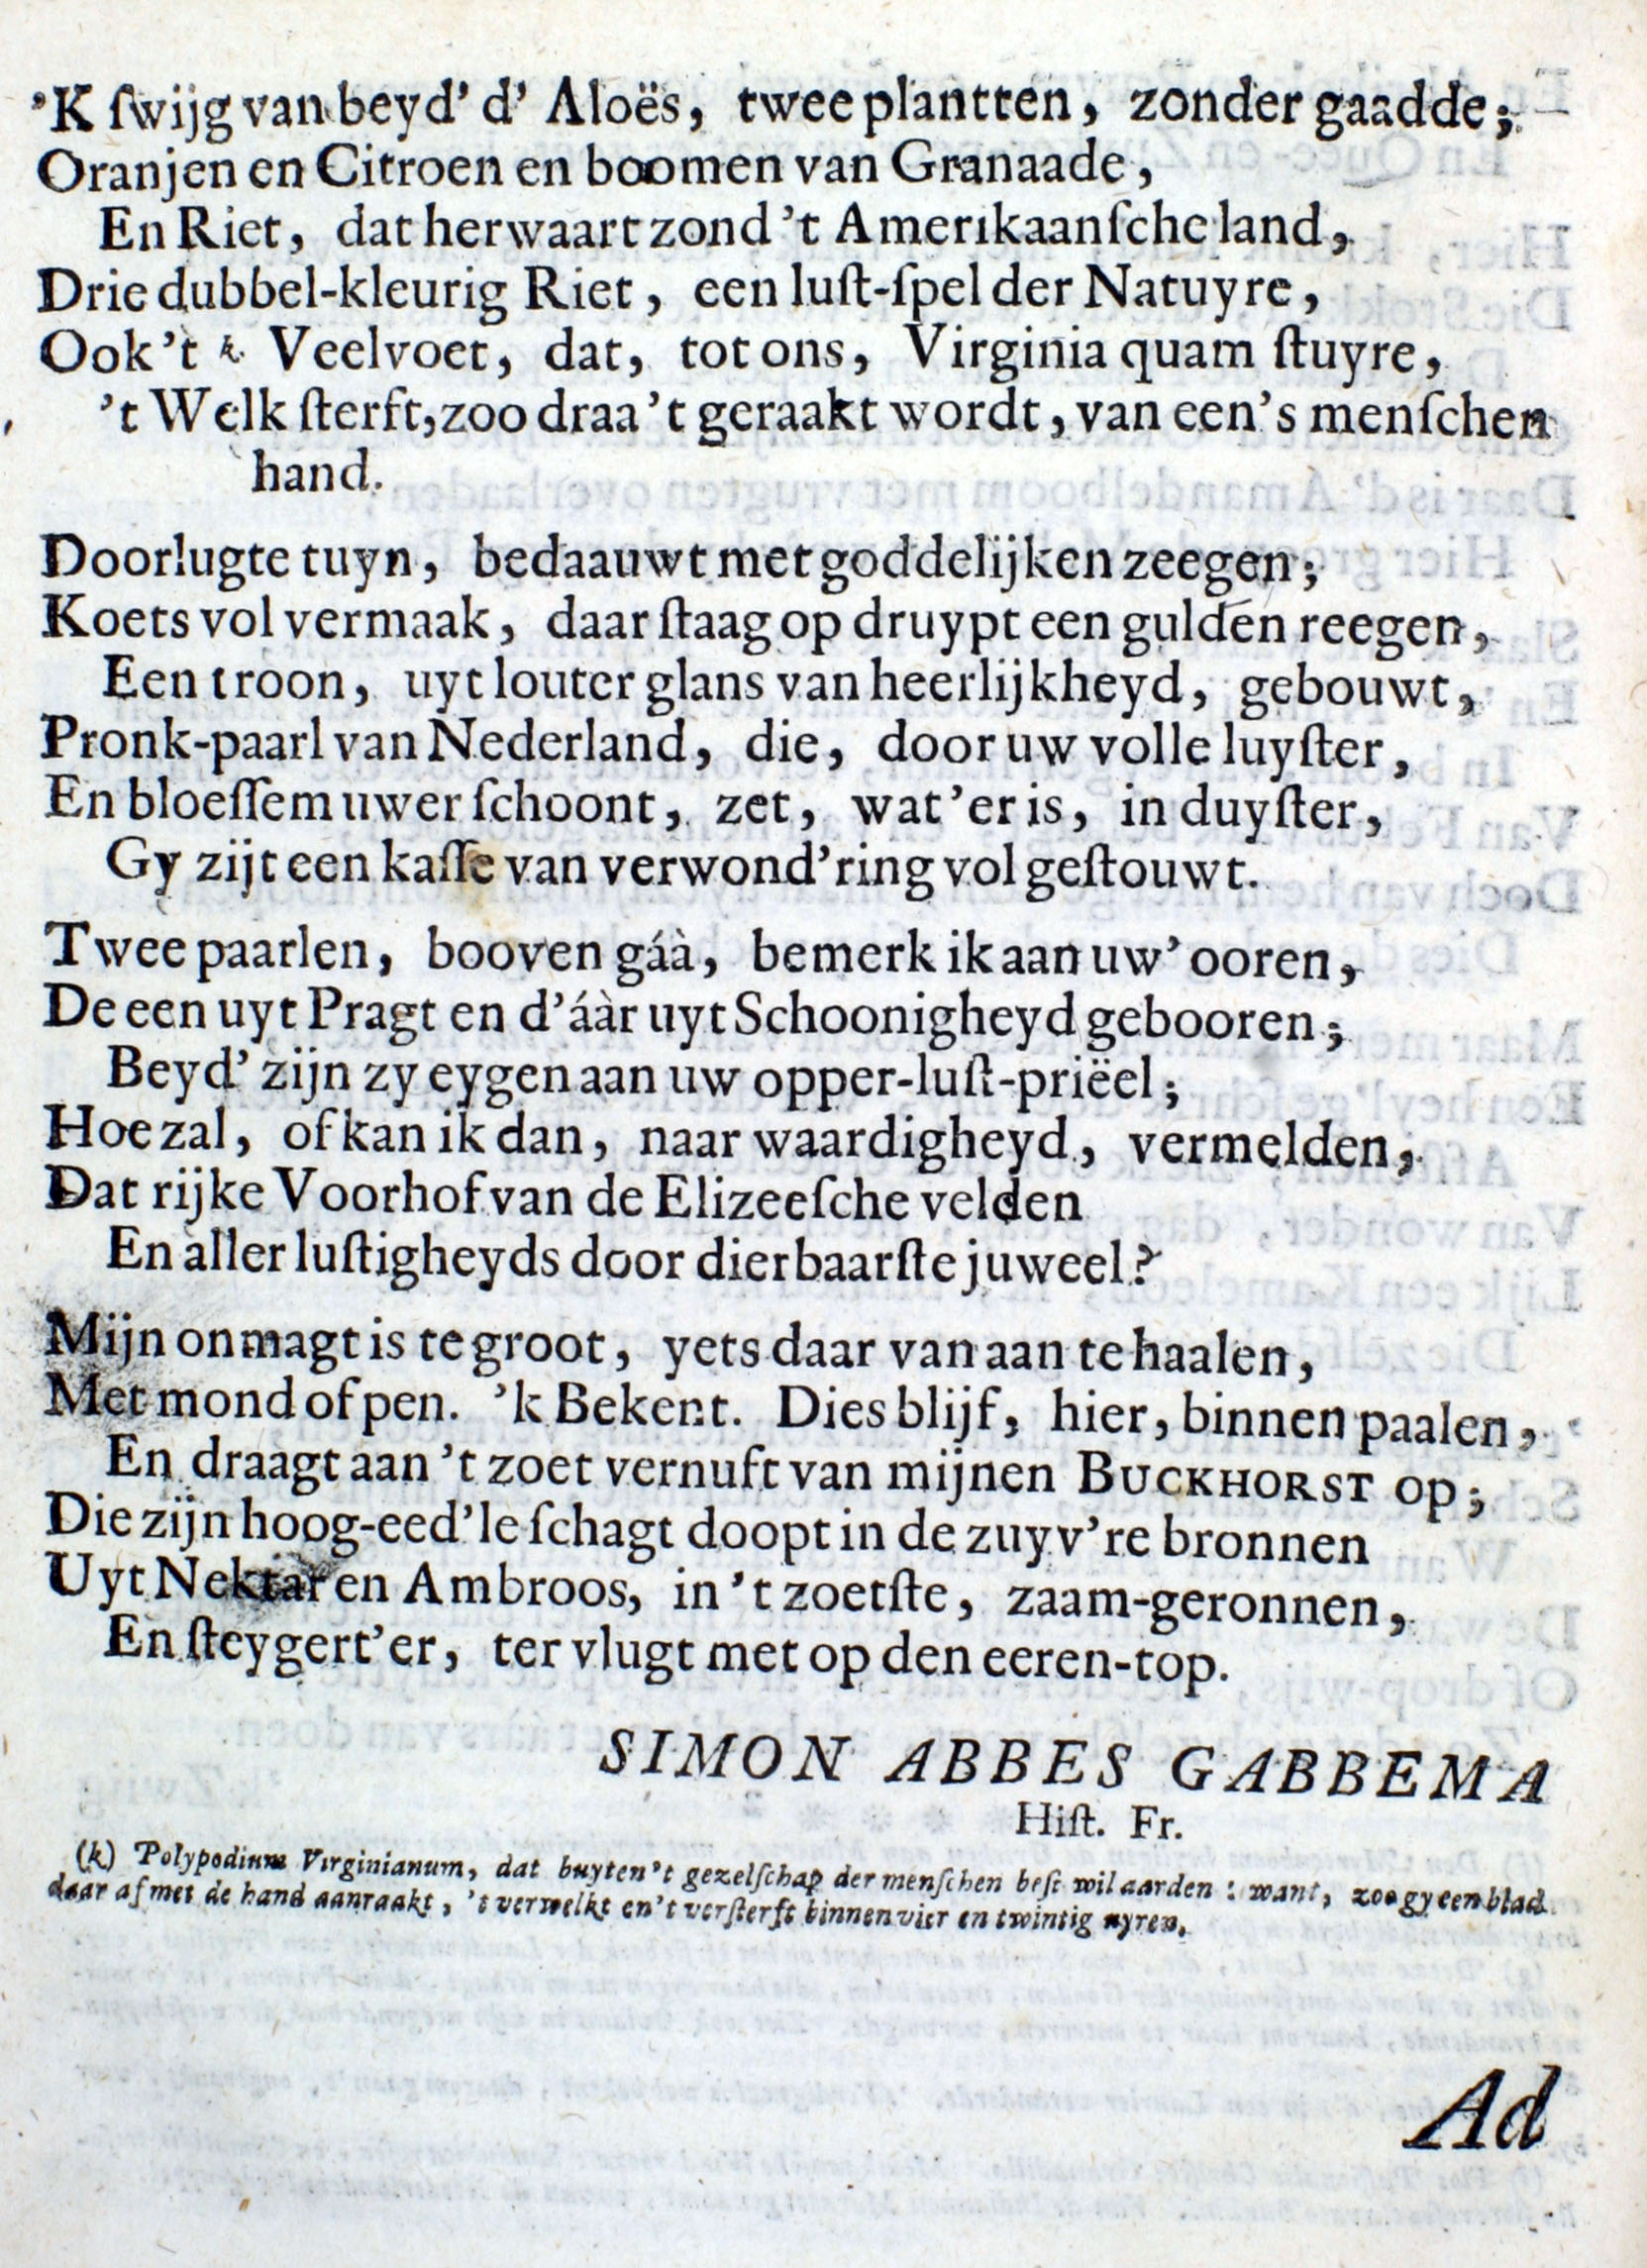 'K ſwijg van beyd' d' Aloës, twee plantten, zonder gaadde;
Oranjen en Citroen en boomen van Granaade,
En Riet, dat herwaart zond 't Amerikaanſche land,
Drie dubbel-kleurig Riet, een luſt-ſpel der Natuyre,
Ook 't k Veelvoet, dat, tot ons, Virginia quam ſtuyre,
't Welk ſterft, zoo draa 't geraakt wordt, van een's menſchen
hand.
Doorlugte tuyn, bedaauwt met goddelijken zeegen;
Koets vol vermaak, daar ſtaag op druypt een gulden reegen,
Een troon, uyt louter glans van heerlijkheyd, gebouwt,
Pronk-paarl van Nederland, die, door uw volle luyſter,
En bloeſſem uwer ſchoont, zet, wat 'er is, in duyſter,
Gy zijt een kaſſe van verwond'ring vol geſtouwt.
Twee paarlen, booven gáà, bemerk ik aan uw' ooren,
De een uyt Pragt en d'áàr uyt Schoonigheyd gebooren;
Beyd' zijn zy eygen aan uw opper-luſt-priëel;
Hoe zal, of kan ik dan, naar waardigheyd, vermelden,
Dat rijke Voorhof van de Elizeeſche velden
En aller luſtigheyds door dierbaarſte juweel?
Mijn onmagt is te groot, yets daar van aan te haalen,
Met mond of pen. 'k Bekent. Dies blijf, hier, binnen paalen,
En draagt aan 't zoet vernuft van mijnen BUCKHORST op;
Die zijn hoog-eed'le ſchagt doopt in de zuyv're bronnen
Uyt Nektar en Ambroos, in 't zoetſte, zaam-geronnen,
En ſteygert'er, ter vlugt met op den eeren-top.
SIMON ABBES GABBEMA
Hiſt. Fr.
(k) Polypodium Virginianum, dat buyten 't gezelſchap der menſchen beſt wil aarden: want, zoo gy een blad
daar af met de hand aanraakt, 't verwelkt en 't verſterft binnen vier en twintig uyren.
Ad